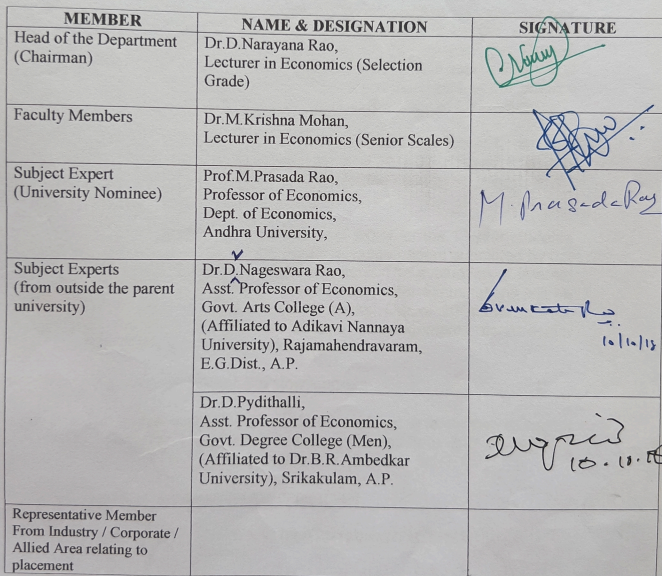 MEMBER
NAME & DESIGNATION
SIGNATURE
Head of the Department
(Chairman)
Dr.D.Narayana Rao,
Lecturer in Economics (Selection
Grade)
Faculty Members
Dr.M.Krishna Mohan,
Lecturer in Economics (Senior Scales)
Subject Expert
(University Nominee)
Prof.M.Prasada Rao,
Professor of Economics,
Dept. of Economics,
Andhra University,
M. Prasada Rao
Subject Experts
(from outside the parent
university)
Dr.D.Nageswara Rao,
Asst. Professor of Economics,
Govt. Arts College (A),
(Affiliated to Adikavi Nannaya
University), Rajamahendravaram,
E.G.Dist., A.P.
10/10/18
Dr.D.Pydithalli,
Asst. Professor of Economics,
Govt. Degree College (Men),
(Affiliated to Dr.B.R.Ambedkar
University), Srikakulam, A.P.
Representative Member
From Industry / Corporate /
Allied Area relating to
placement